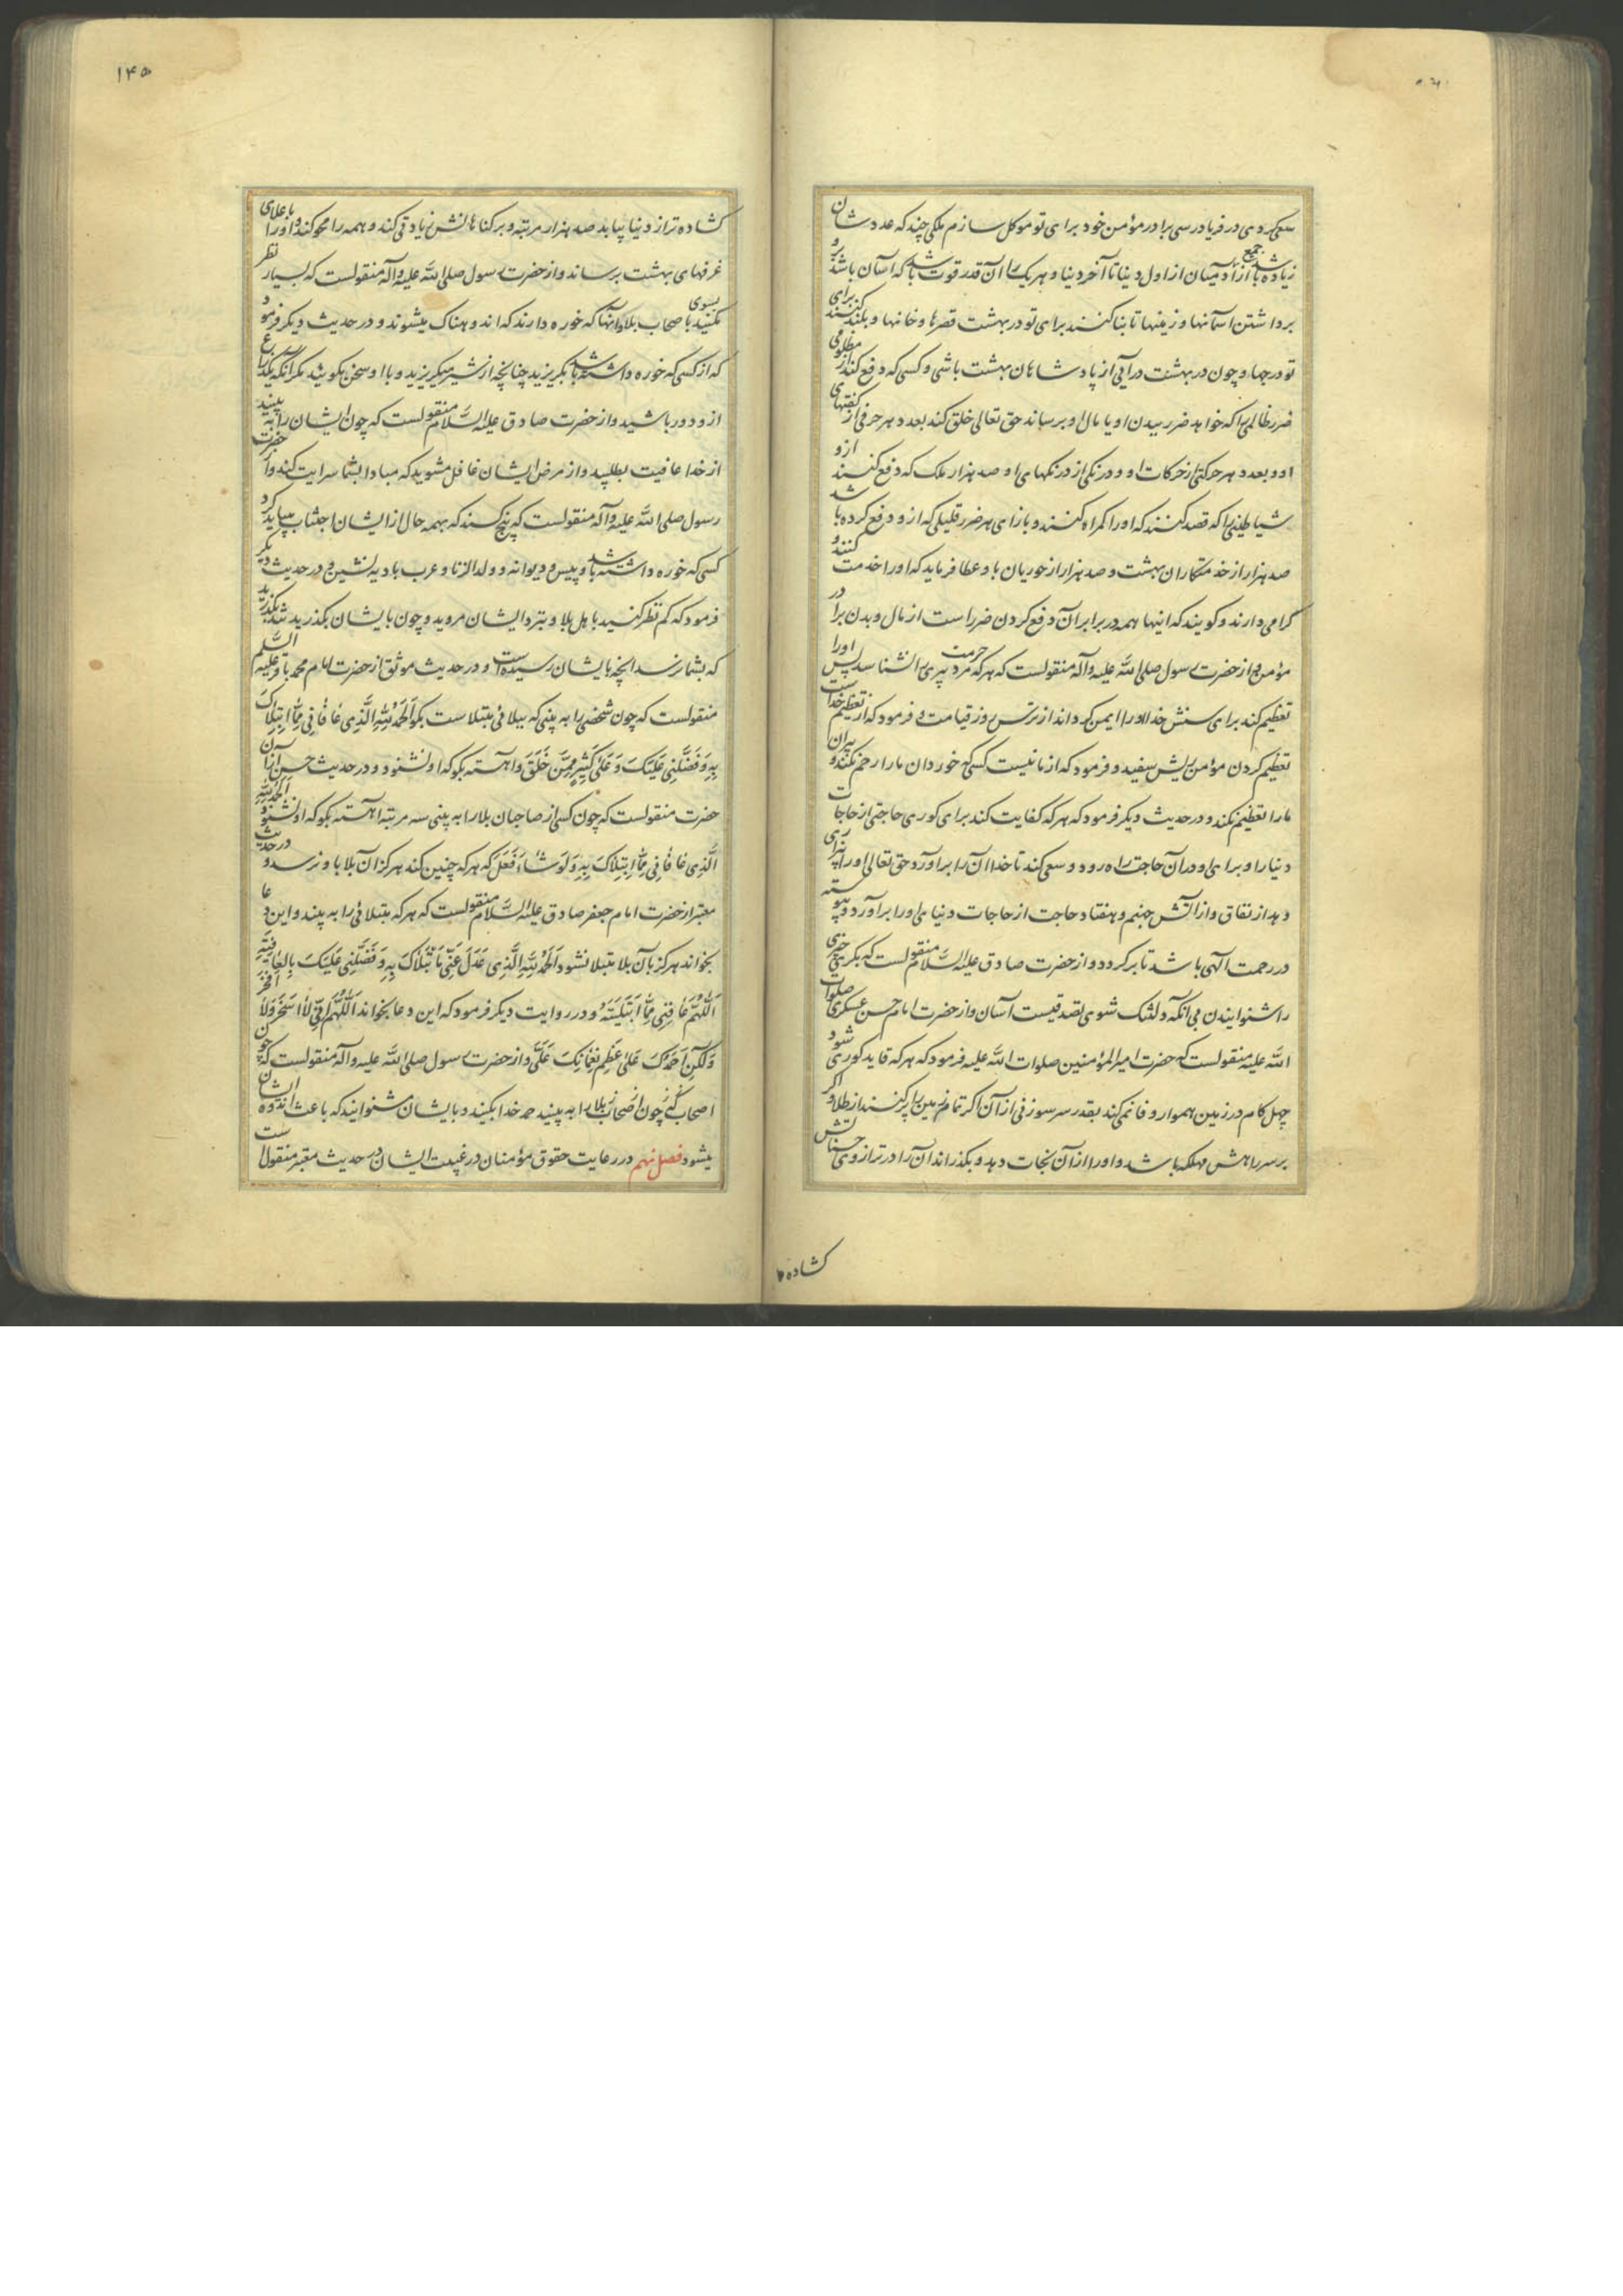 سعی کردی در فریادرسی برادر مؤمن خود برای تو موکل سازم ملکی چند که عدد شان
زیاده باشد از جمع آدمیان از اول دنیا تا آخر دنیا و هر یک را آن قدر قوت باشد که آسان باشد برو
برداشتن آسمانها و زمینها تا بنا کنند برای تو در بهشت قصرها و خانها و بلند کنند برای
تو درجها و چون در بهشت درآیی از پادشاهان بهشت باشی و کسی که دفع کند از مظلومی
ضرر ظالمی را که خواهد ضرر ببدن او یا مال او برساند حق تعالی خلق کند بعدد هر حرفی از گفتهای
او و بعدد هر حرکتی از حرکات او و درنگی از درنگهای او صد هزار ملک که دفع کنند ازو
شیاطینی را که قصد کنند که او را گمراه کنند و بازای هر ضرر قلیلی که ازو دفع کرده باشد
صد هزار از خدمتکاران بهشت و صد هزار از حوریان باو عطا فرماید که او را خدمت کنند و
گرامی دارند و گویند که اینها همه در برابر آن دفع کردن ضرر است از مال و بدن برادر
مؤمن و از حضرت رسول صلی الله علیه و آله منقولست که هر که حرمت مرد پیری را شناسد پس او را
تعظیم کند برای سنش خدا او را ایمن گرداند از ترس روز قیامت و فرمود که از تعظیم خداست
تعظیم کردن مؤمن ریش سفید و فرمود که از ما نیست کسی که خوردان ما را رحم نکند و پیران
ما را تعظیم نکند و در حدیث دیگر فرمود که هر که کفایت کند برای کوری حاجتی از حاجات
دنیا را و برای او در آن حاجت راه رود و سعی کند تا خدا آن را برآورد حق تعالی او را بیزاری
دهد از نفاق و از آتش جهنم و هفتاد حاجت از حاجات دنیای او را برآورد و پیوسته
در رحمت الهی باشد تا برگردد و از حضرت صادق علیه السلام منقولست که بکری چیزی
را شنوانیدن بی آنکه دلتنگ شوی تصدقیست آسان و از حضرت امام حسن عسکری صلوات
الله علیه منقولست که حضرت امیرالمؤمنین صلوات الله علیه فرمود که هر که قاید کوری شود
چهل گام در زمین هموار وفا نمی کند بقدر سر سوزنی از آن اگر تمام زمین را پر کنند از طلا و اگر
بر سر راهش مهلکه باشد و او را از آن نجات دهد و بگذراند آن را در ترازوی حسناتش
کشاده
۱۴۵
کشاده تر از دنیا بیابد صد هزار مرتبه و بر گناهانش زیادتی کند و همه را محو کند و او را باعلای
غرفهای بهشت برساند و از حضرت رسول صلی الله علیه و آله منقولست که بسیار نظر
مکنید بسوی اصحاب بلا و آنها که خوره دارند که اندوهناک میشوند و در حدیث دیگر فرمود
که از کسی که خوره داشته باشد بگریزید چنانچه از شیر میگریزید و با او سخن مگوئید مگر آنکه یکذراع
ازو دور باشید و از حضرت صادق علیه السلام منقولست که چون ایشان را به بینید
از خدا عافیت بطلبید و از مرض ایشان غافل مشوید که مبادا بشما سرایت کند و از حضرت
رسول صلی الله علیه و آله منقولست که پنج کسند که بهمه حال از ایشان اجتناب میباید کرد
کسی که خوره داشته باشد و پیس و دیوانه و ولد الزنا و عرب بادیه نشین و در حدیث دیگر
فرمود که کم نظر کنید باهل بلا و بنزد ایشان مروید و چون بایشان بگذرید تند بگذرید
که بشما نرسد آنچه بایشان رسیده است و در حدیث موثق از حضرت امام محمد باقر علیه السلم
منقولست که چون شخصی را به بینی که ببلائی مبتلاست بگو اَلْحَمْدُ لِلّٰهِ الَّذِی عَافَانِی مِمَّا ابْتَلَاکَ
بِهِ وَ فَضَّلَنِی عَلَیْکَ وَ عَلیٰ کَثِیرٍ مِمَّنْ خَلَقَ و آهسته بگو که او نشنود و در حدیث حسن از آن
حضرت منقولست که چون کسی از صاحبان بلا را به بینی سه مرتبه آهسته بگو که او نشنود اَلْحَمْدُ لِلّٰهِ
الَّذِی عَافَانِی مِمَّا ابْتَلَاکَ بِهِ وَ لَوْ شَاءَ فَعَلَ که هر که چنین کند هرگز آن بلا باو نرسد و در حدیث
معتبر از حضرت امام جعفر صادق علیه السلام منقولست که هر که مبتلائی را به بیند و این دعا
بخواند هرگز بآن بلا مبتلا نشود اَلْحَمْدُ لِلّٰهِ الَّذِی عَدَلَ عَنِّی مَا ابْتَلَاکَ بِهِ وَ فَضَّلَنِی عَلَیْکَ بِالْعَافِیَةِ
اَللّٰهُمَّ عَافِنِی مِمَّا ابْتَلَیْتَهُ و در روایت دیگر فرمود که این دعا بخواند اَللّٰهُمَّ اِنِّی لَا اَسْخَرُ وَ لَا اَفْخَرُ
وَ لٰکِنْ اَحْمَدُکَ عَلیٰ عَظِیمِ نَعْمَائِکَ عَلَیَّ و از حضرت رسول صلی الله علیه و آله منقولست که چون
اصحاب بلا را به بینید حمد خدا بکنید و بایشان مشنوانید که باعث اندوه ایشان
میشود فصل نهم در رعایت حقوق مؤمنان در غیبت ایشان در حدیث معتبر منقولست